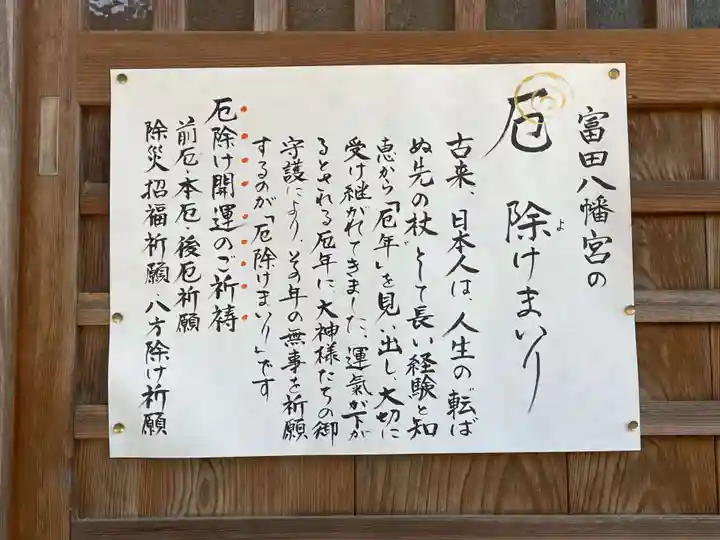 富田八幡宮の
厄除けまいり
よ
古来、日本人は、人生の「転ば
ぬ先の杖」として長い経験と知
恵から「厄年」を見い出し、大切に
受け継がれてきました。運氣が下が
るとされる厄年に、大神様たちの御
守護により、その年の無事を祈願
するのが「厄除けまいり」です
厄除け開運のご祈祷
前厄・本厄・後厄祈願
除災招福祈願・八方除け祈願